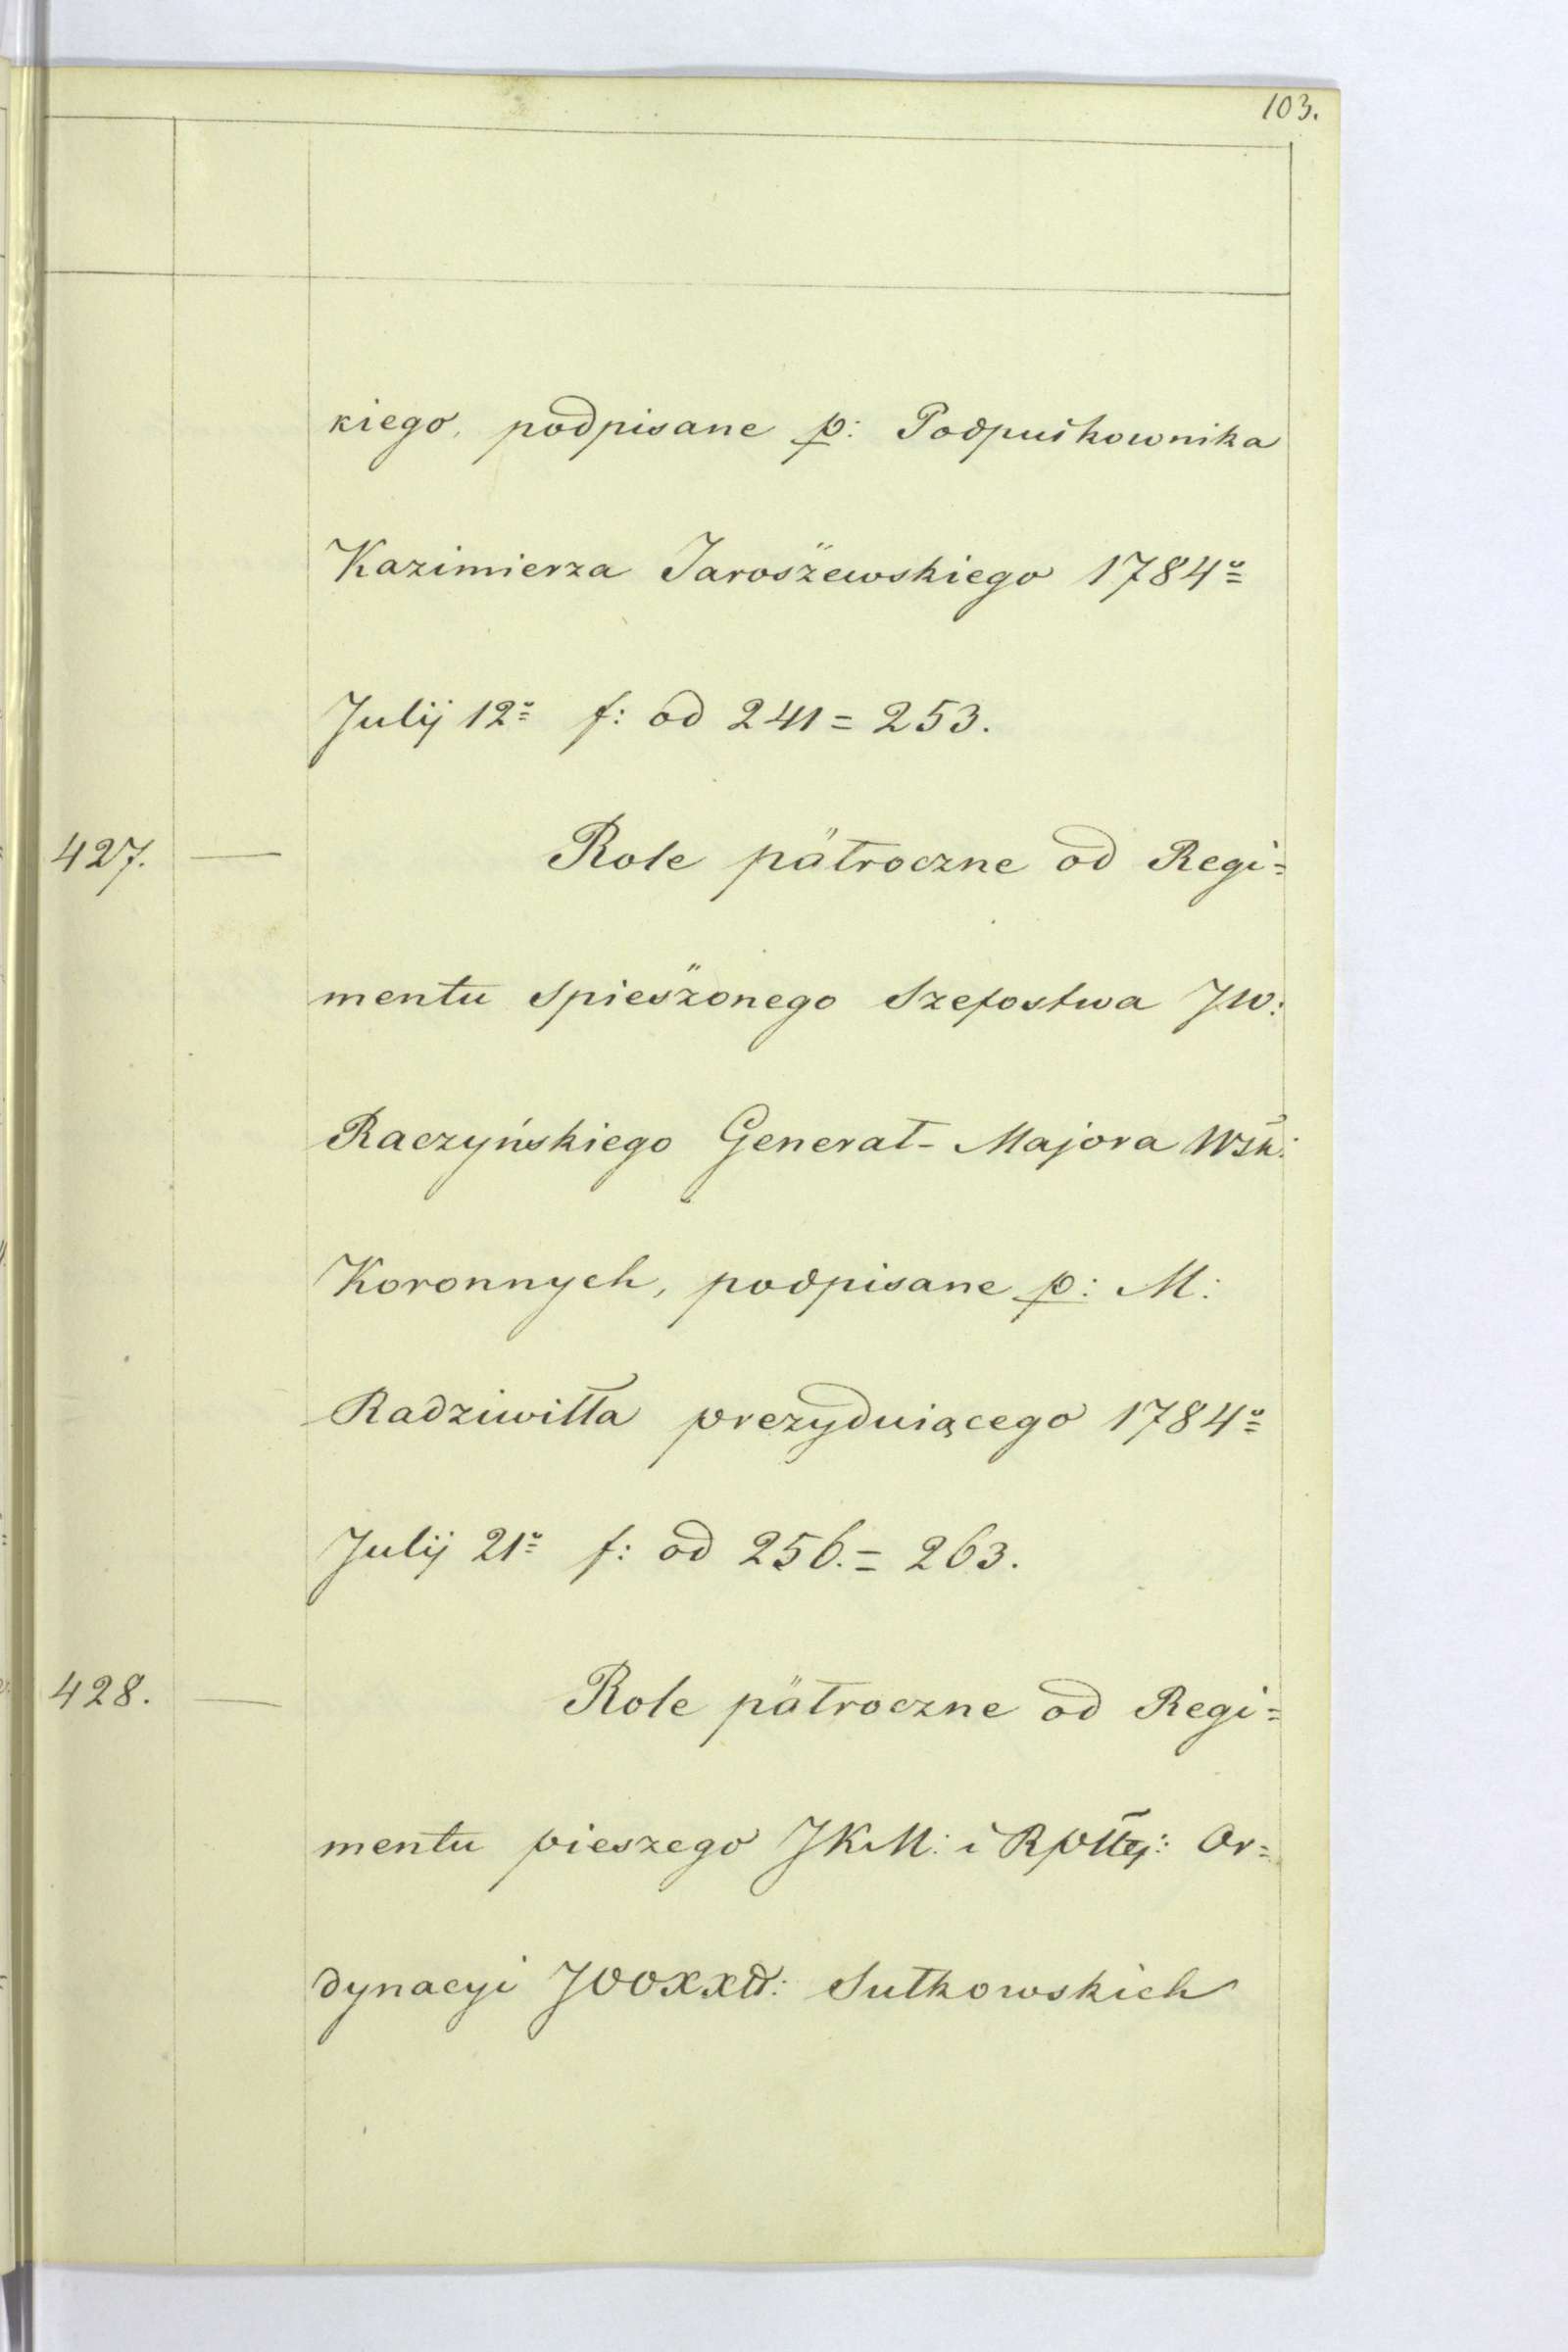 103.
kiego, podpisane p: Podpułkownika
Kazimierza Jaroszewskiego 1784º
Julij 12º f: od 241 = 253.
427. — Role półroczne od Regi=
mentu spieszonego Szefostwa JW:
Raczyńskiego Generał-Majora Wsk:
Koronnych, podpisane p: M:
Radziwiłła prezyduiącego 1784º
Julij 21º f: od 256. = 263.
428. — Role półroczne od Regi=
mentu pieszego JKM: i Rpltej: Or=
dynacyi Sułkowskich